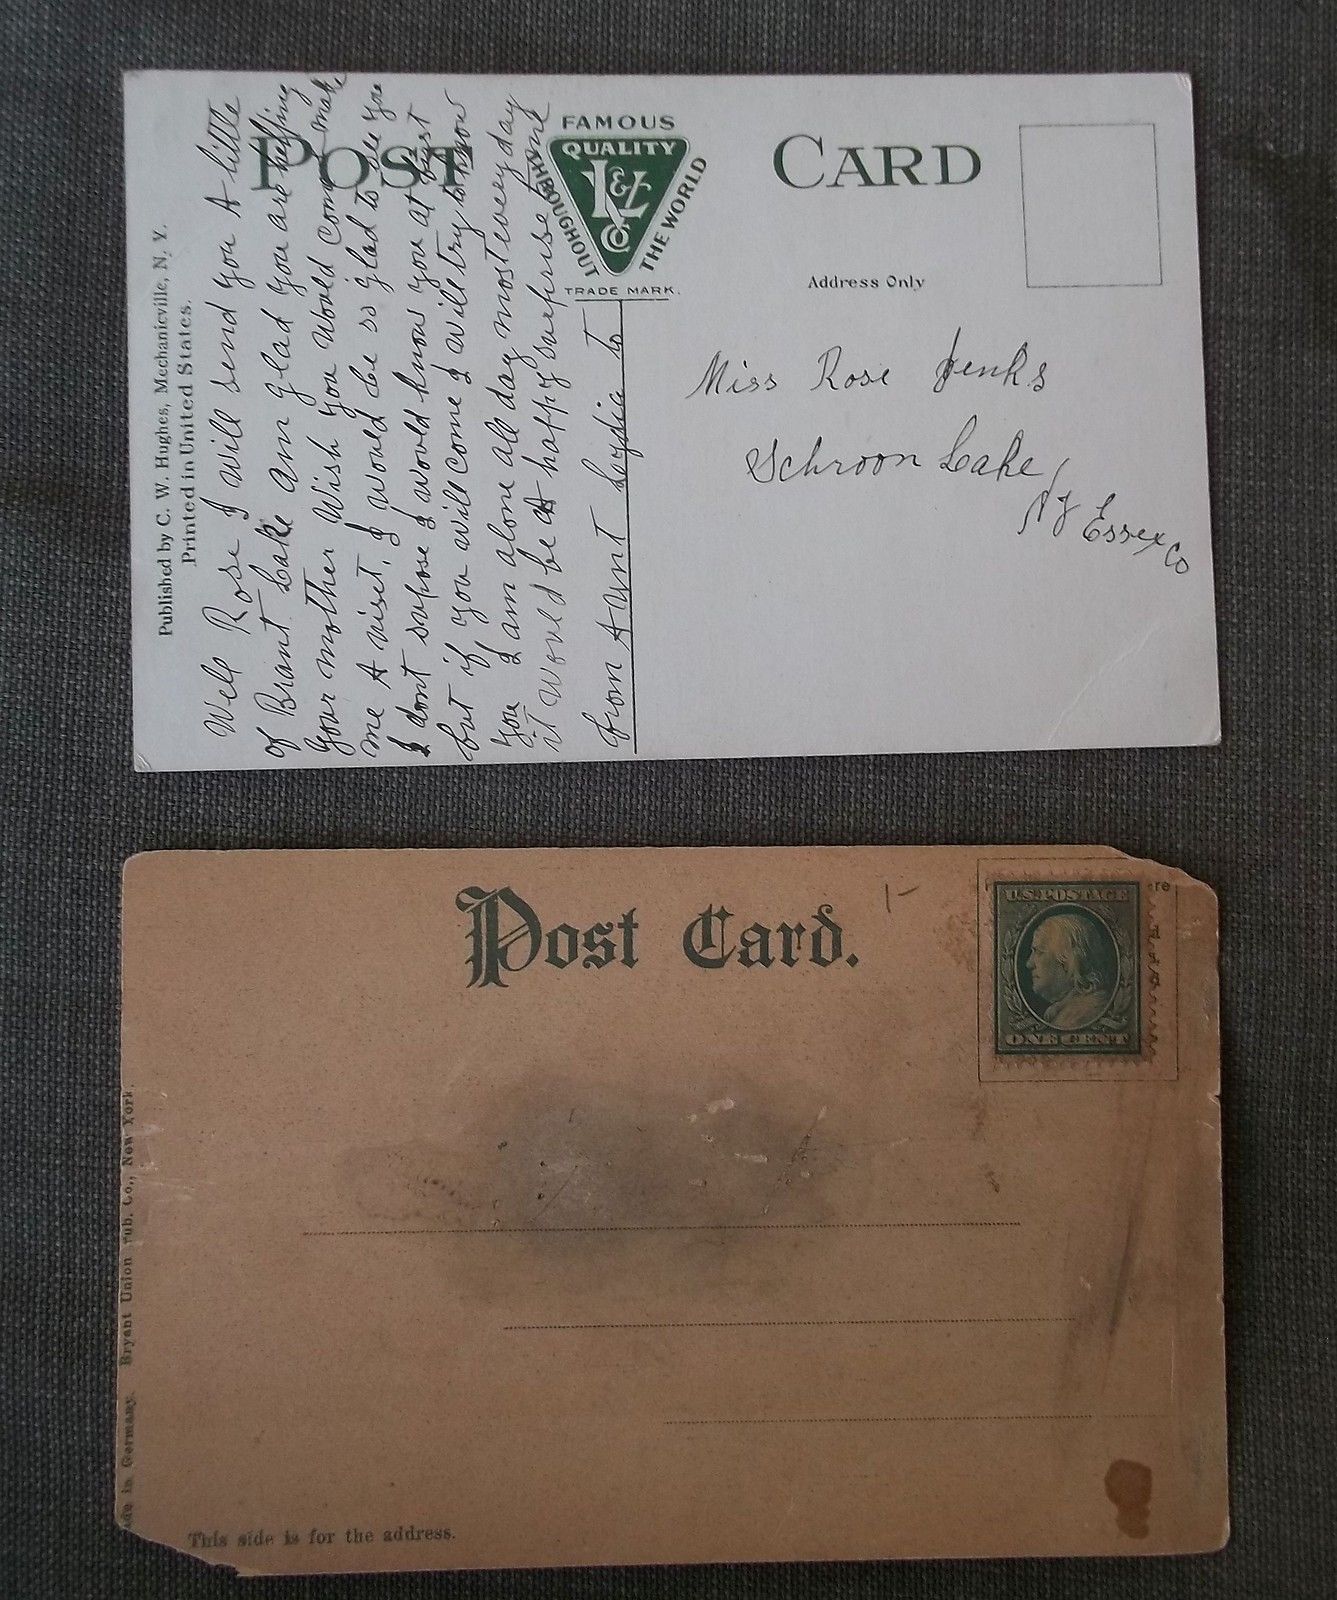 Published by C. W. Hughes, Mechanicville, N. Y.
Printed in United States.
POST CARD
FAMOUS
QUALITY
L & Z Co
THROUGHOUT THE WORLD
TRADE MARK.
Address Only
Well Rose I will send you A little
of Brant Lake Am glad you are helping
your mother Wish you Would Come make
me A visit. I would be so glad to see you
I dont supose I would know you at first
but if you will come I will try to know
you I am alone all day most every day
it Would be A happy surprise
from Aunt Lydia to
Miss Rose Jenks
Schroon Lake
NY Essex Co
Post Card.
1-
re
U.S. POSTAGE
ONE CENT
ade in Germany. Bryant Union Pub. Co., New York.
This side is for the address.